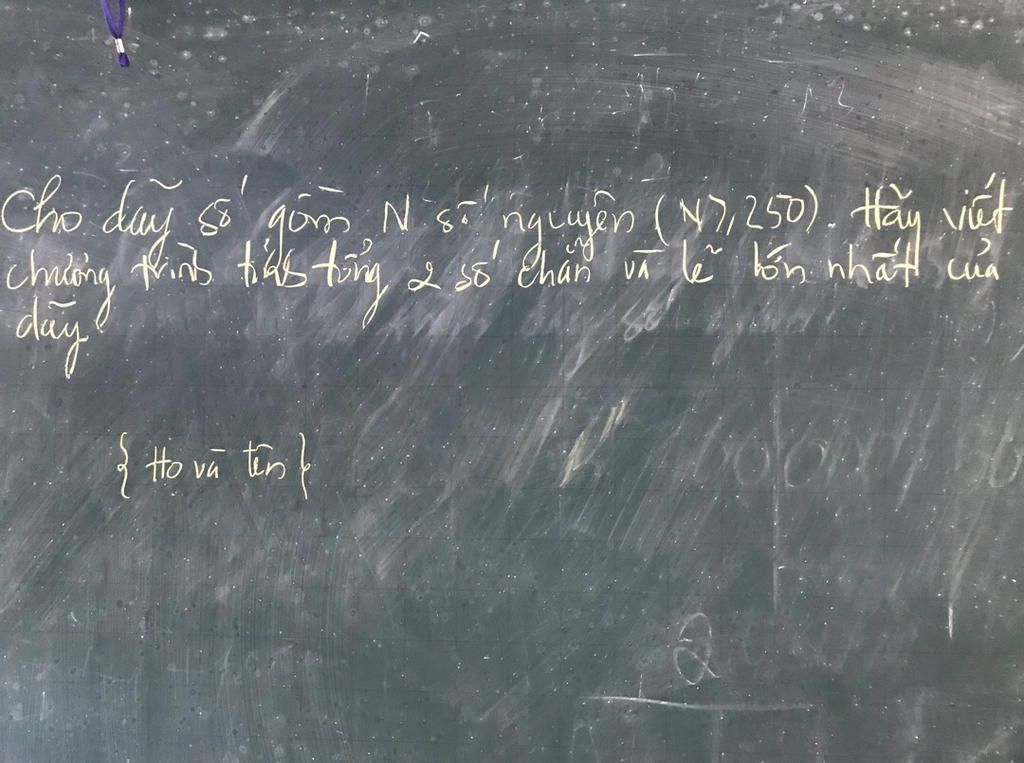 Cho dãy số gồm N số nguyên (N ≥ 250). Hãy viết
chương trình tính tổng 2 số chẵn và lẽ lớn nhất của
dãy.
{ Họ và tên }